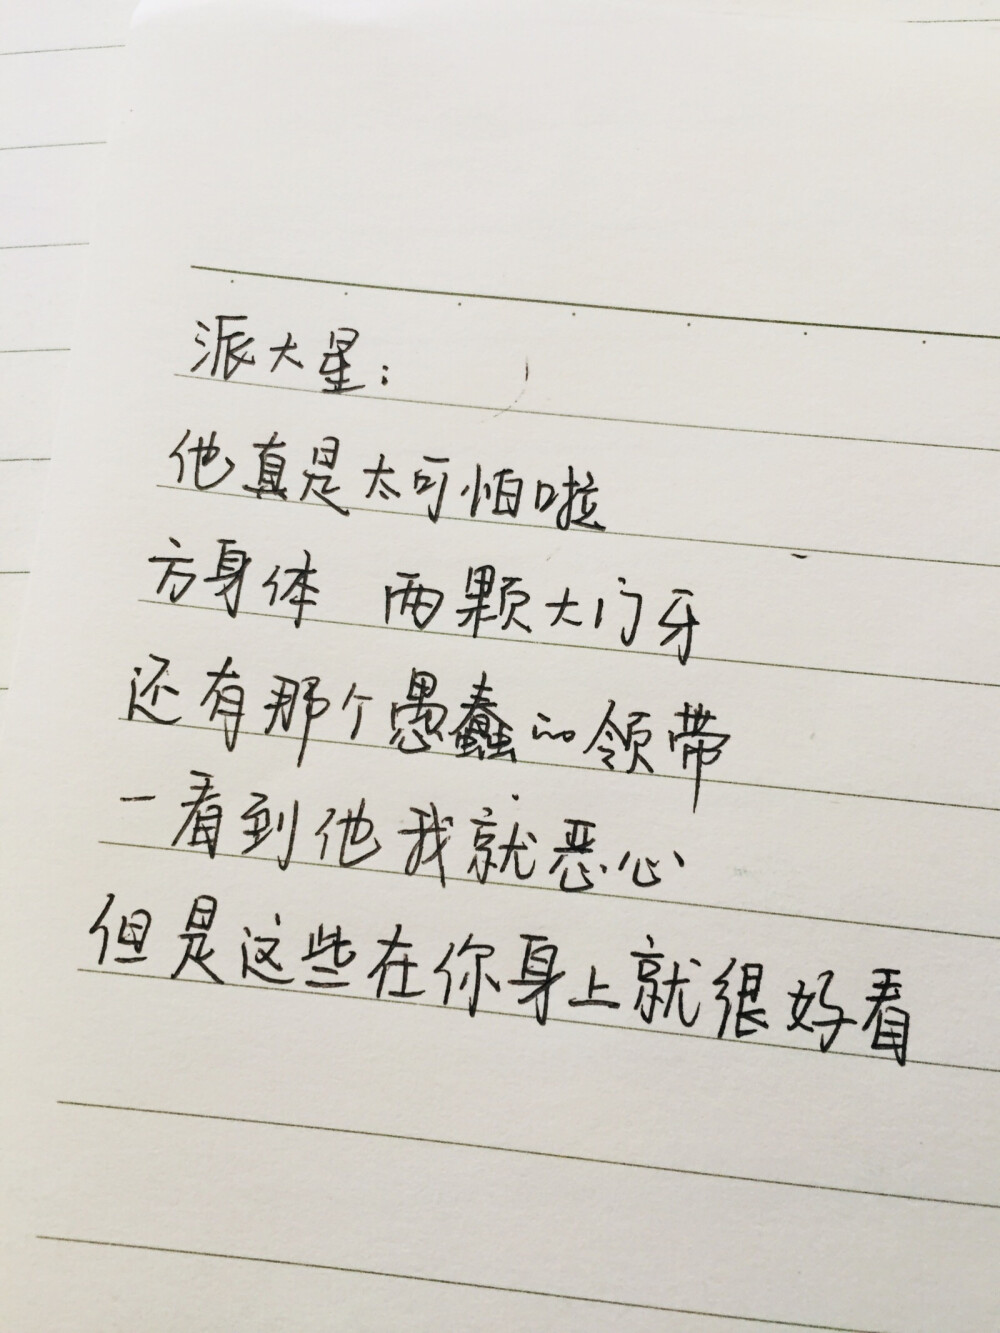 派大星：
他真是太可怕啦
方身体 两颗大门牙
还有那个愚蠢的领带
一看到他我就恶心
但是这些在你身上就很好看